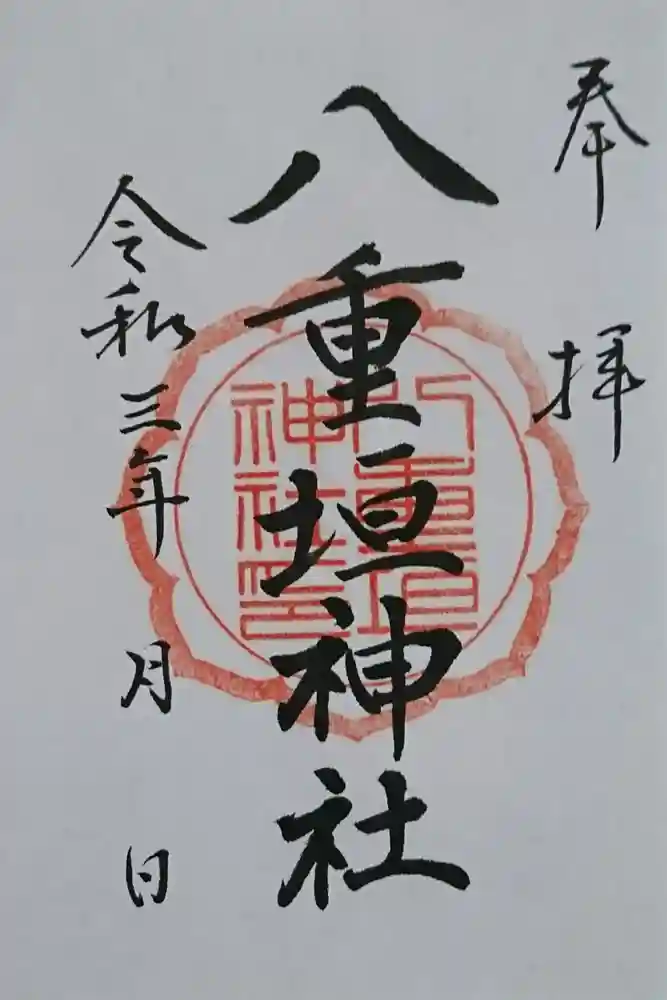 奉拝
八重垣神社
八重垣神社印
令和三年月日